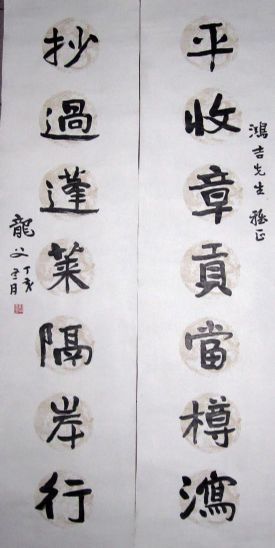 鴻吉先生 雅正
平收章貢當樽瀉
抄過蓬萊隔岸行
龍父 丁亥 月